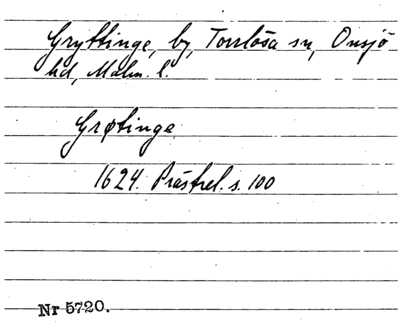 Gryttinge, by, Torrlösa sn, Onsjö
hd, Malm. l.
Grøtinge
1624. Prästrel. s. 100
Nr 5720.